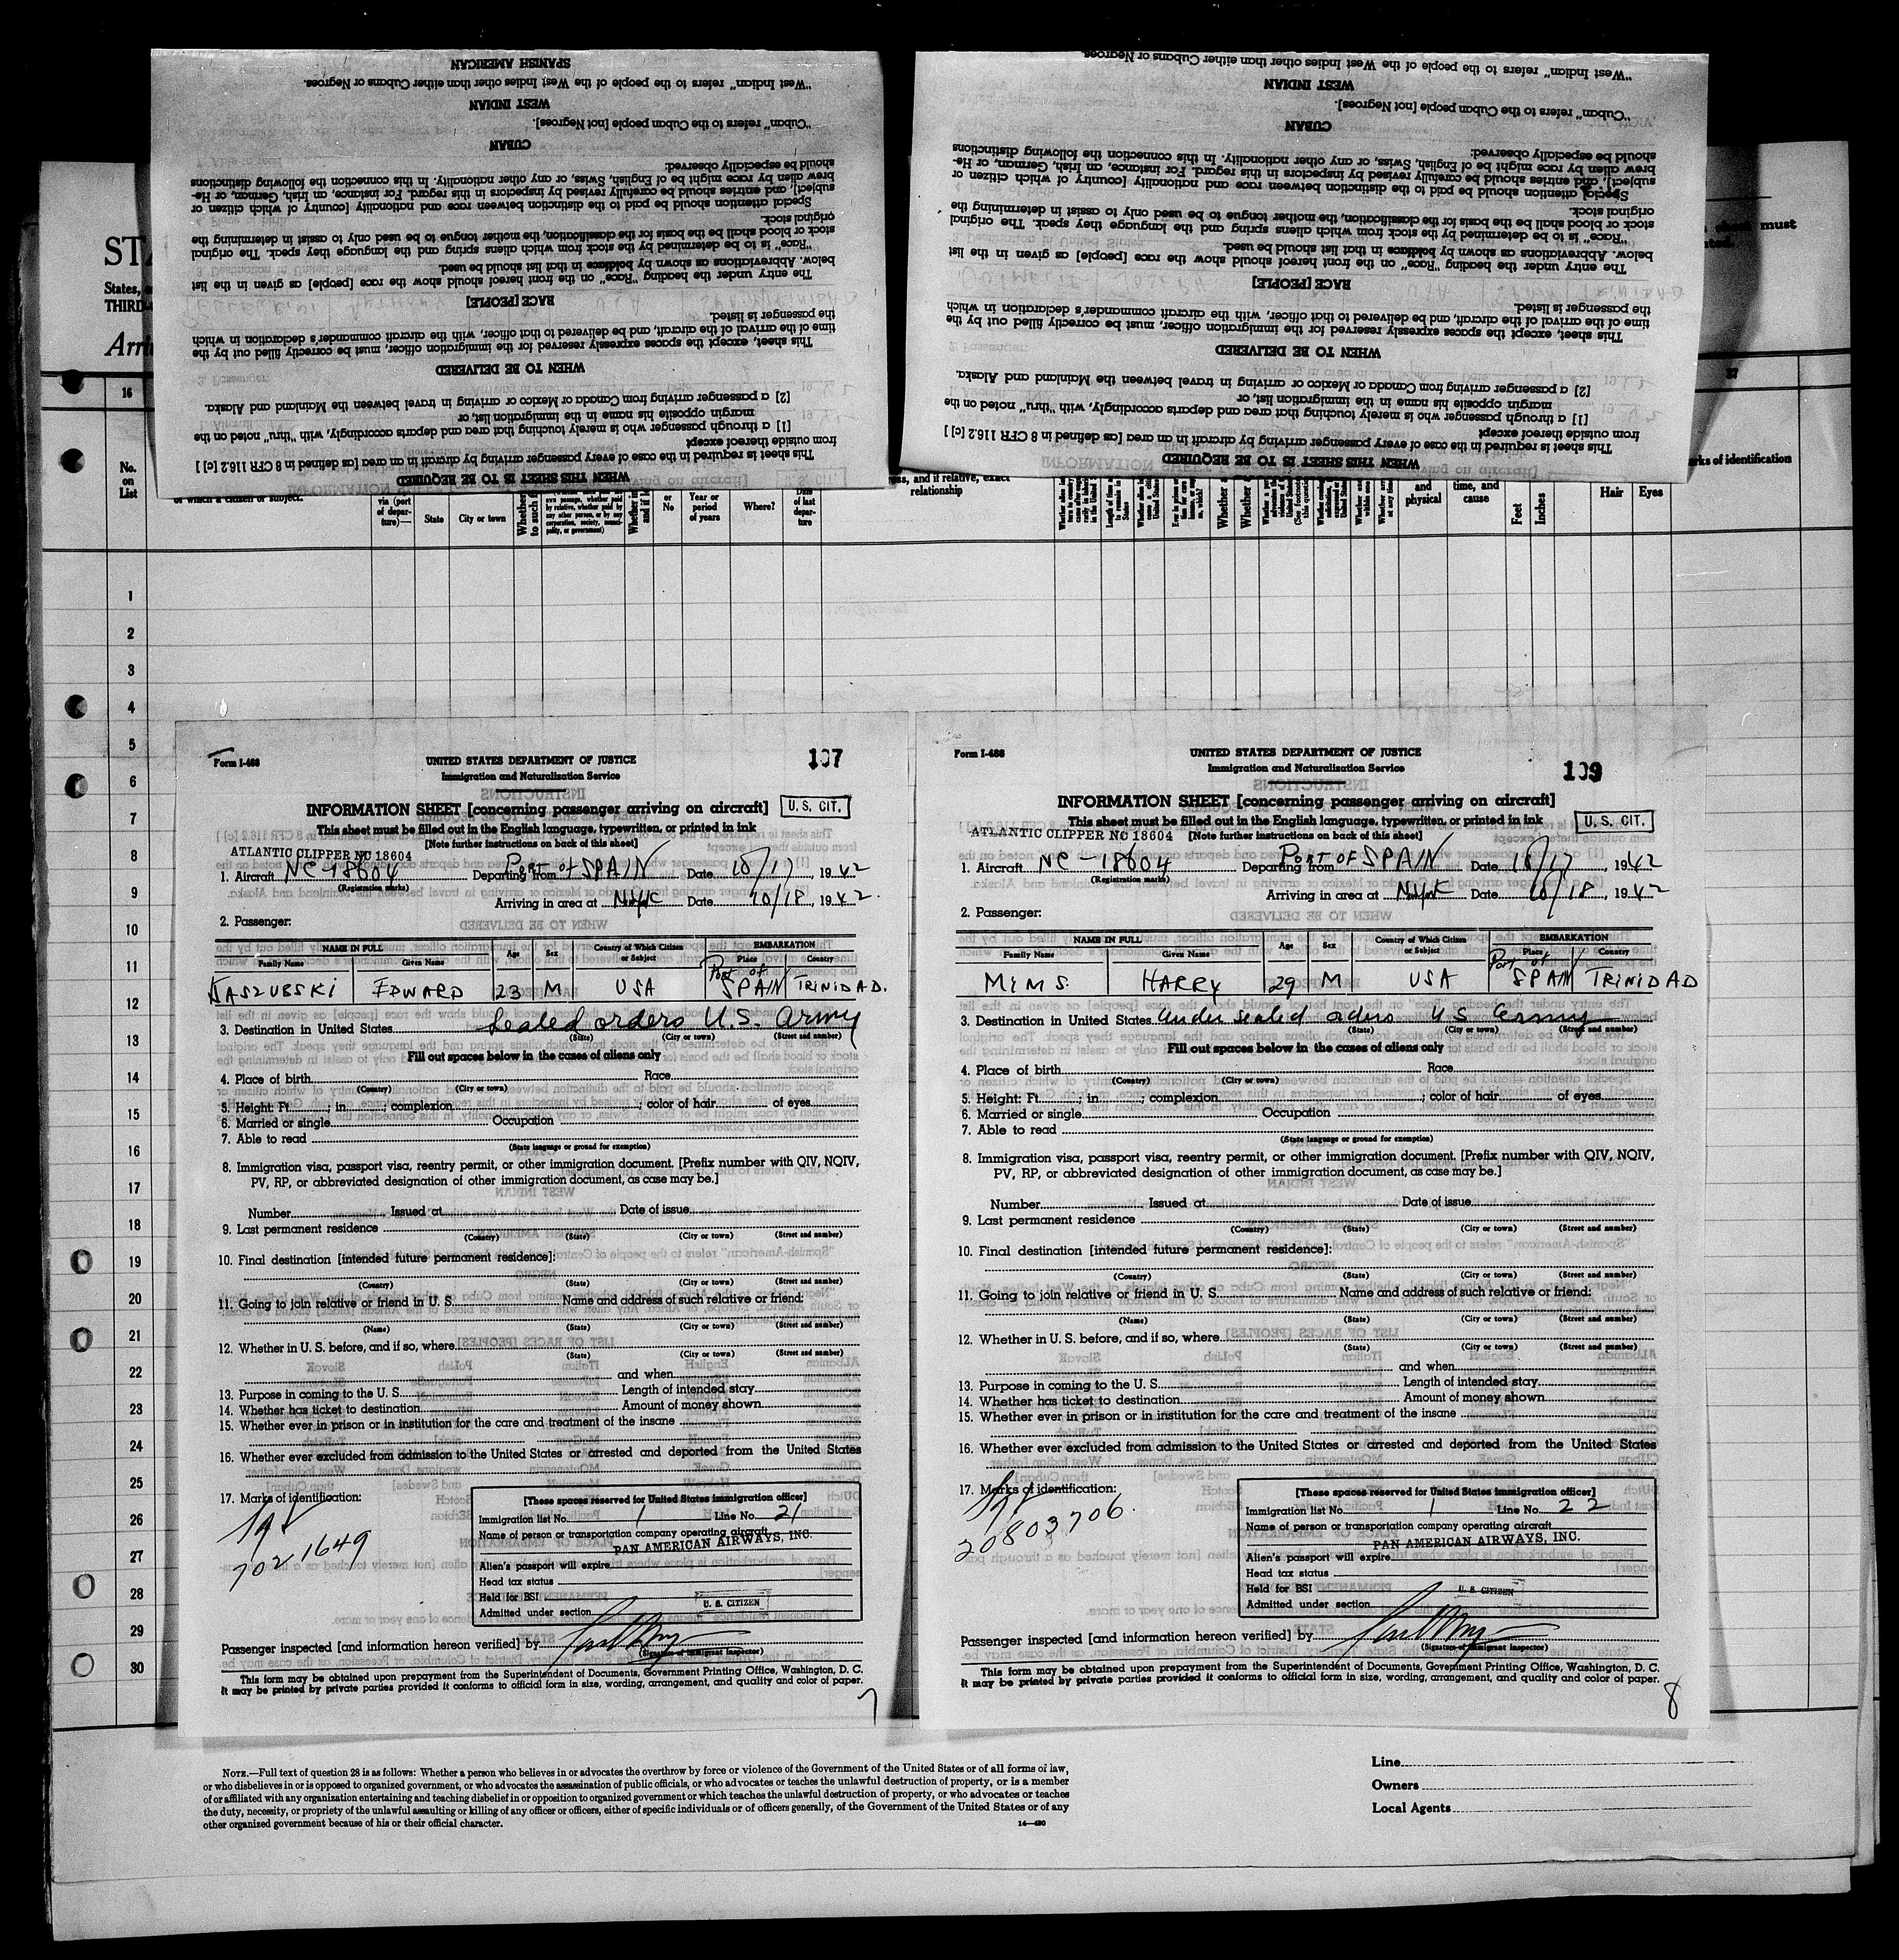 SPANISH AMERICAN
"West Indian" refers to the people of the West Indies other than either Cubans or Negroes.
WEST INDIAN
"Cuban" refers to the Cuban people [not Negroes].
CUBAN
should be especially observed:
brew alien by race might be of English, Swiss, or any other nationality. In this connection the following distinctions
subject], and entries should be carefully revised by inspectors in this regard. For instance, an Irish, German, or He-
Special attention should be paid to the distinction between race and nationality [country of which citizen or
original stock.
stock or blood shall be the basis for the classification, the mother tongue to be used only to assist in determining the
"Race" is to be determined by the stock from which aliens spring and the language they speak. The original
below. Abbreviations as shown by boldface in that list should be used.
The entry under the heading "Race" on the front hereof should show the race [people] as given in the list
RACE [PEOPLE]
the passenger is listed.
time of the arrival of the aircraft, and be delivered to that officer, with the aircraft commander's declaration in which
This sheet, except the spaces expressly reserved for the immigration officer, must be correctly filled out by the
WHEN TO BE DELIVERED
[2] a passenger arriving from Canada or Mexico or arriving in travel between the Mainland and Alaska.
margin opposite his name in the immigration list, or
[1] a through passenger who is merely touching that area and departs accordingly, with "thru" noted on the
from outside thereof except
This sheet is required in the case of every passenger arriving by aircraft in an area [as defined in 8 CFR 116.2 [c] ]
WHEN THIS SHEET IS TO BE REQUIRED
"West Indian" refers to the people of the West Indies other than either Cubans or Negroes.
WEST INDIAN
"Cuban" refers to the Cuban people [not Negroes].
CUBAN
should be especially observed:
brew alien by race might be of English, Swiss, or any other nationality. In this connection the following distinctions
subject], and entries should be carefully revised by inspectors in this regard. For instance, an Irish, German, or He-
Special attention should be paid to the distinction between race and nationality [country of which citizen or
original stock.
stock or blood shall be the basis for the classification, the mother tongue to be used only to assist in determining the
"Race" is to be determined by the stock from which aliens spring and the language they speak. The original
below. Abbreviations as shown by boldface in that list should be used.
The entry under the heading "Race" on the front hereof should show the race [people] as given in the list
RACE [PEOPLE]
the passenger is listed.
time of the arrival of the aircraft, and be delivered to that officer, with the aircraft commander's declaration in which
This sheet, except the spaces expressly reserved for the immigration officer, must be correctly filled out by the
WHEN TO BE DELIVERED
[2] a passenger arriving from Canada or Mexico or arriving in travel between the Mainland and Alaska.
margin opposite his name in the immigration list, or
[1] a through passenger who is merely touching that area and departs accordingly, with "thru" noted on the
from outside thereof except
This sheet is required in the case of every passenger arriving by aircraft in an area [as defined in 8 CFR 116.2 [c] ]
WHEN THIS SHEET IS TO BE REQUIRED
States,
THIRD
must
16
27
No. on List
of which a citizen or subject.
via (port of departure)—
State
City or town
or No
Year or period of years
Where?
Date of last departure
and if relative, exact relationship
and physical
time, and cause
Feet
Inches
marks of identification
Hair
Eyes
1
2
3
4
5
6
7
8
9
10
11
12
13
14
15
16
17
18
19
20
21
22
23
24
25
26
27
28
29
30
Form I-466
UNITED STATES DEPARTMENT OF JUSTICE
107
Immigration and Naturalization Service
INFORMATION SHEET [concerning passenger arriving on aircraft]
U. S. CIT.
This sheet must be filled out in the English language, typewritten, or printed in ink
[Note further instructions on back of this sheet]
ATLANTIC CLIPPER NC 18604
1. Aircraft NC-18604 Departing from PORT OF SPAIN Date 10/17, 1942
(Registration marks)
Arriving in area at N.Y.K Date 10/18, 1942.
2. Passenger:
NAME IN FULL Age Sex Country of Which Citizen or Subject EMBARKATION
Family Name Given Name Place Country
KASZUBSKI EDWARD 23 M USA Port of SPAIN TRINIDAD.
3. Destination in United States Sealed orders U.S. Army
(State) (City or town) (Street and number)
Fill out spaces below in the cases of aliens only
4. Place of birth Race
(Country) (City or town)
5. Height: Ft. ; in. ; complexion ; color of hair of eyes
6. Married or single Occupation
7. Able to read
(State language or ground for exemption)
8. Immigration visa, passport visa, reentry permit, or other immigration document. [Prefix number with QIV, NQIV,
PV, RP, or abbreviated designation of other immigration document, as case may be.]
Number Issued at Date of issue
9. Last permanent residence
(Country) (State) (City or town) (Street and number)
10. Final destination [intended future permanent residence]:
(Country) (State) (City or town) (Street and number)
11. Going to join relative or friend in U. S. Name and address of such relative or friend:
(Name) (State) (City or town) (Street and number)
12. Whether in U. S. before, and if so, where
(State) (City or town) (Street and number)
and when
13. Purpose in coming to the U. S. Length of intended stay
14. Whether has ticket to destination Amount of money shown
15. Whether ever in prison or in institution for the care and treatment of the insane
16. Whether ever excluded from admission to the United States or arrested and deported from the United States
17. Marks of identification:
7021649
[These spaces reserved for United States immigration officer]
Immigration list No. 1 Line No. 21
Name of person or transportation company operating aircraft
PAN AMERICAN AIRWAYS, INC.
Alien's passport will expire
Head tax status
Held for BSI
U. S. CITIZEN
Admitted under section
Passenger inspected [and information hereon verified] by
(Signature of immigrant inspector)
This form may be obtained upon prepayment from the Superintendent of Documents, Government Printing Office, Washington, D. C.
It may be printed by private parties provided it conforms to official form in size, wording, arrangement, and quality and color of paper.
7
Form I-466
UNITED STATES DEPARTMENT OF JUSTICE
109
Immigration and Naturalization Service
INFORMATION SHEET [concerning passenger arriving on aircraft]
U. S. CIT.
This sheet must be filled out in the English language, typewritten, or printed in ink
ATLANTIC CLIPPER NC 18604 [Note further instructions on back of this sheet]
1. Aircraft NC-18604 Departing from PORT OF SPAIN Date 10/17, 1942
(Registration marks)
Arriving in area at N.Y.K Date 10/18, 1942
2. Passenger:
NAME IN FULL Age Sex Country of Which Citizen or Subject EMBARKATION
Family Name Given Name Place Country
MIMS. HARRY 29 M USA Port of SPAIN TRINIDAD
3. Destination in United States Under sealed orders US Army
(State) (City or town) (Street and number)
Fill out spaces below in the cases of aliens only
4. Place of birth Race
(Country) (City or town)
5. Height: Ft. ; in. ; complexion ; color of hair of eyes
6. Married or single Occupation
7. Able to read
(State language or ground for exemption)
8. Immigration visa, passport visa, reentry permit, or other immigration document. [Prefix number with QIV, NQIV,
PV, RP, or abbreviated designation of other immigration document, as case may be.]
Number Issued at Date of issue
9. Last permanent residence
(Country) (State) (City or town) (Street and number)
10. Final destination [intended future permanent residence]:
(Country) (State) (City or town) (Street and number)
11. Going to join relative or friend in U. S. Name and address of such relative or friend:
(Name) (State) (City or town) (Street and number)
12. Whether in U. S. before, and if so, where
(State) (City or town) (Street and number)
and when
13. Purpose in coming to the U. S. Length of intended stay
14. Whether has ticket to destination Amount of money shown
15. Whether ever in prison or in institution for the care and treatment of the insane
16. Whether ever excluded from admission to the United States or arrested and deported from the United States
17. Marks of identification:
20803706.
[These spaces reserved for United States immigration officer]
Immigration list No. 1 Line No. 22
Name of person or transportation company operating aircraft
PAN AMERICAN AIRWAYS, INC.
Alien's passport will expire
Head tax status
Held for BSI
U. S. CITIZEN
Admitted under section
Passenger inspected [and information hereon verified] by
(Signature of immigrant inspector)
This form may be obtained upon prepayment from the Superintendent of Documents, Government Printing Office, Washington, D. C.
It may be printed by private parties provided it conforms to official form in size, wording, arrangement, and quality and color of paper.
8
NOTE.—Full text of question 28 is as follows: Whether a person who believes in or advocates the overthrow by force or violence of the Government of the United States or of all forms of law,
or who disbelieves in or is opposed to organized government, or who advocates the assassination of public officials, or who advocates or teaches the unlawful destruction of property, or is a member
of or affiliated with any organization entertaining and teaching disbelief in or opposition to organized government or which teaches the unlawful destruction of property, or who advocates or teaches
the duty, necessity, or propriety of the unlawful assaulting or killing of any officer or officers, either of specific individuals or of officers generally, of the Government of the United States or of any
other organized government because of his or their official character.
14—430
Line
Owners
Local Agents